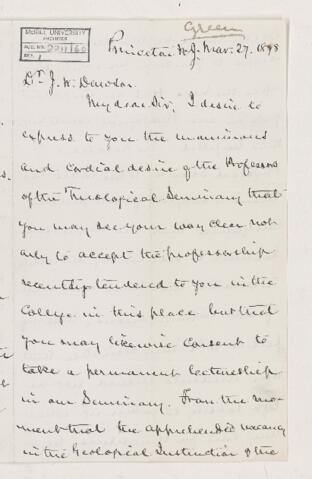 Green
McGILL UNIVERSITY
ARCHIVES
ACC. NO. 2211/60
REF. 1
Princeton N.J. Mar. 27. 1878
Dr. J. W. Dawson
My dear Sir, I desire to
express to you the unanimous
and cordial desire of the Professors
of the Theological Seminary that
you may see your way clear not
only to accept the professorship
recently tendered to you in the
College in this place but that
you may likewise consent to
take a permanent lectureship
in our Seminary. From the mo-
ment that the apprehended vacancy
in the Geological Instruction of the